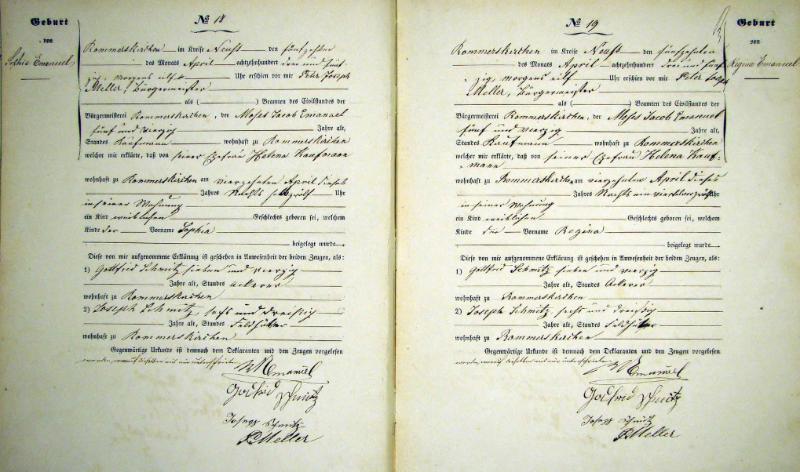 Geburt
von
Sophia Emanuel
No 18
Rommerskirchen im Kreise Neuß den fünfzehnten
des Monats April achtzehnhundert drei und fünf-
zig, morgens elf Uhr erschien vor mir Peter Joseph
Meller, Bürgermeister
als ( ) Beamten des Civilstandes der
Bürgermeisterei Rommerskirchen, der Moses Jacob Emanuel
fünf und vierzig Jahre alt,
Standes Kaufmann wohnhaft zu Rommerskirchen
welcher mir erklärte, daß von seiner Ehefrau Helena Kaufmann
wohnhaft zu Rommerskirchen am vierzehnten April dieses
Jahres Nachts Uhr
in seiner Wohnung
ein Kind weiblichen Geschlechts geboren sei, welchem
Kinde der Vorname Sophia
beigelegt wurde
Diese von mir aufgenommene Erklärung ist geschehen in Anwesenheit der beiden Zeugen, als:
1) Gottfried Schmitz sieben und vierzig
Jahre alt, Standes Ackerer
wohnhaft zu Rommerskirchen
2) Joseph Schmitz, sechs und dreißig
Jahre alt, Standes Feldhüter
wohnhaft zu Rommerskirchen
Gegenwärtige Urkunde ist demnach dem Deklaranten und den Zeugen vorgelesen
worden, dieselben mit mir unterschrieben
Emanuel
Gotfrid Schmitz
Joseph Schmitz
P Meller
No 19
Rommerskirchen im Kreise Neuß den fünfzehnten
des Monats April achtzehnhundert drei und fünf-
zig, morgens elf Uhr erschien vor mir Peter Joseph
Meller, Bürgermeister
als ( ) Beamten des Civilstandes der
Bürgermeisterei Rommerskirchen, der Moses Jacob Emanuel
fünf und vierzig Jahre alt,
Standes Kaufmann wohnhaft zu Rommerskirchen
welcher mir erklärte, daß von seiner Ehefrau Helena Kauf-
mann
wohnhaft zu Rommerskirchen am vierzehnten April dieses
Jahres Nachts ein viertel vor zwölf Uhr
in seiner Wohnung
ein Kind weiblichen Geschlechts geboren sei, welchem
Kinde der Vorname Regina
beigelegt wurde
Diese von mir aufgenommene Erklärung ist geschehen in Anwesenheit der beiden Zeugen, als:
1) Gottfried Schmitz sieben und vierzig
Jahre alt, Standes Ackerer
wohnhaft zu Rommerskirchen
2) Joseph Schmitz, sechs und dreißig
Jahre alt, Standes Feldhüter
wohnhaft zu Rommerskirchen
Gegenwärtige Urkunde ist demnach dem Deklaranten und den Zeugen vorgelesen
worden, dieselben mit mir unterschrieben
Emanuel
Gotfrid Schmitz
Joseph Schmitz
P Meller
Geburt
von
Regina Emanuel